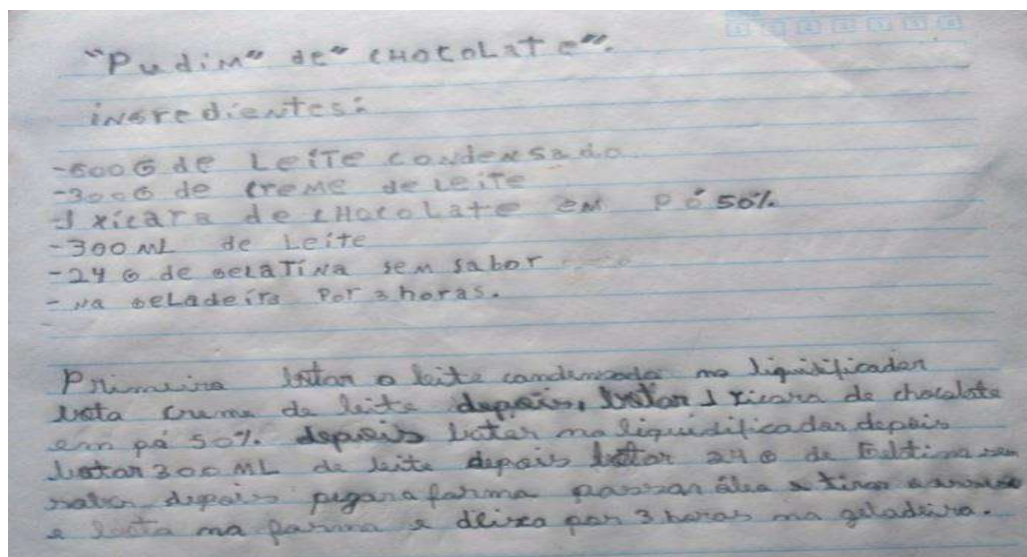 "Pudim" de "CHOCOLATE".
ingredientes:
-600G de Leite condensado
-300G de creme de Leite
-1 xícara de CHocoLate em Pó 50%
-300 ML de Leite
-24 G de GeLaTiNa sem sabor
-Na GeLadeira Por 3 horas.
Primeira botar o leite condensado no liquitificador
bota creme de leite depois, botar 1 xicara de chocolate
em pó 50% depois bater na liquidificador depois
botar 300 ML de leite depois botar 24 G de sem
sabor depois pegar a forma passar e tirar
e bota na forma e deixa por 3 horas na geladeira.